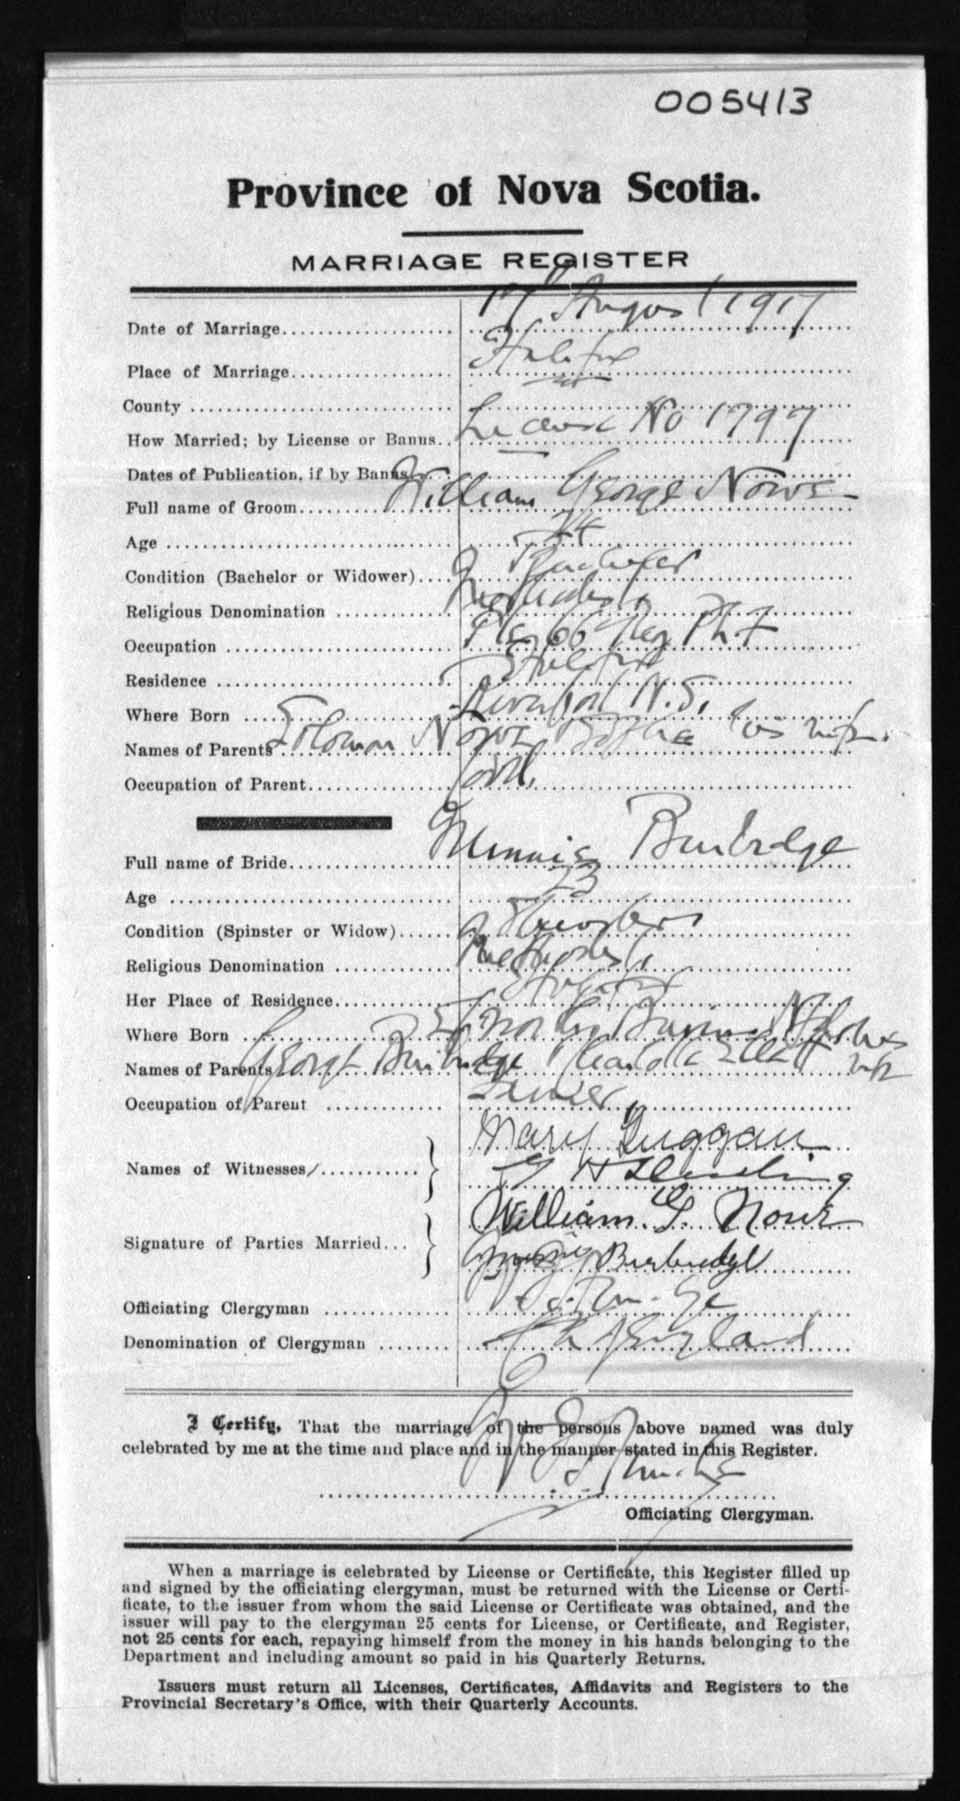 005413
Province of Nova Scotia.
MARRIAGE REGISTER
Date of Marriage 17th August 1917
Place of Marriage Halifax
County
How Married; by License or Banns License No 1797
Dates of Publication, if by Banns
Full name of Groom William George Nowe
Age 24
Condition (Bachelor or Widower) Bachelor
Religious Denomination Methodist
Occupation 66
Residence Halifax
Where Born N.S.
Names of Parents Solomon Nowe his wife
Occupation of Parent
Full name of Bride Minnie Burbridge
Age 23
Condition (Spinster or Widow) Spinster
Religious Denomination Methodist
Her Place of Residence Halifax
Where Born
Names of Parents George Burbridge his wife
Occupation of Parent
Names of Witnesses Mary Duggan
H
Signature of Parties Married William G. Nowe
Minnie Burbridge
Officiating Clergyman
Denomination of Clergyman Ch of England
I Certify, That the marriage of the persons above named was duly
celebrated by me at the time and place and in the manner stated in this Register.
Officiating Clergyman.
When a marriage is celebrated by License or Certificate, this Register filled up
and signed by the officiating clergyman, must be returned with the License or Certi-
ficate, to the issuer from whom the said License or Certificate was obtained, and the
issuer will pay to the clergyman 25 cents for License, or Certificate, and Register,
not 25 cents for each, repaying himself from the money in his hands belonging to the
Department and including amount so paid in his Quarterly Returns.
Issuers must return all Licenses, Certificates, Affidavits and Registers to the
Provincial Secretary's Office, with their Quarterly Accounts.